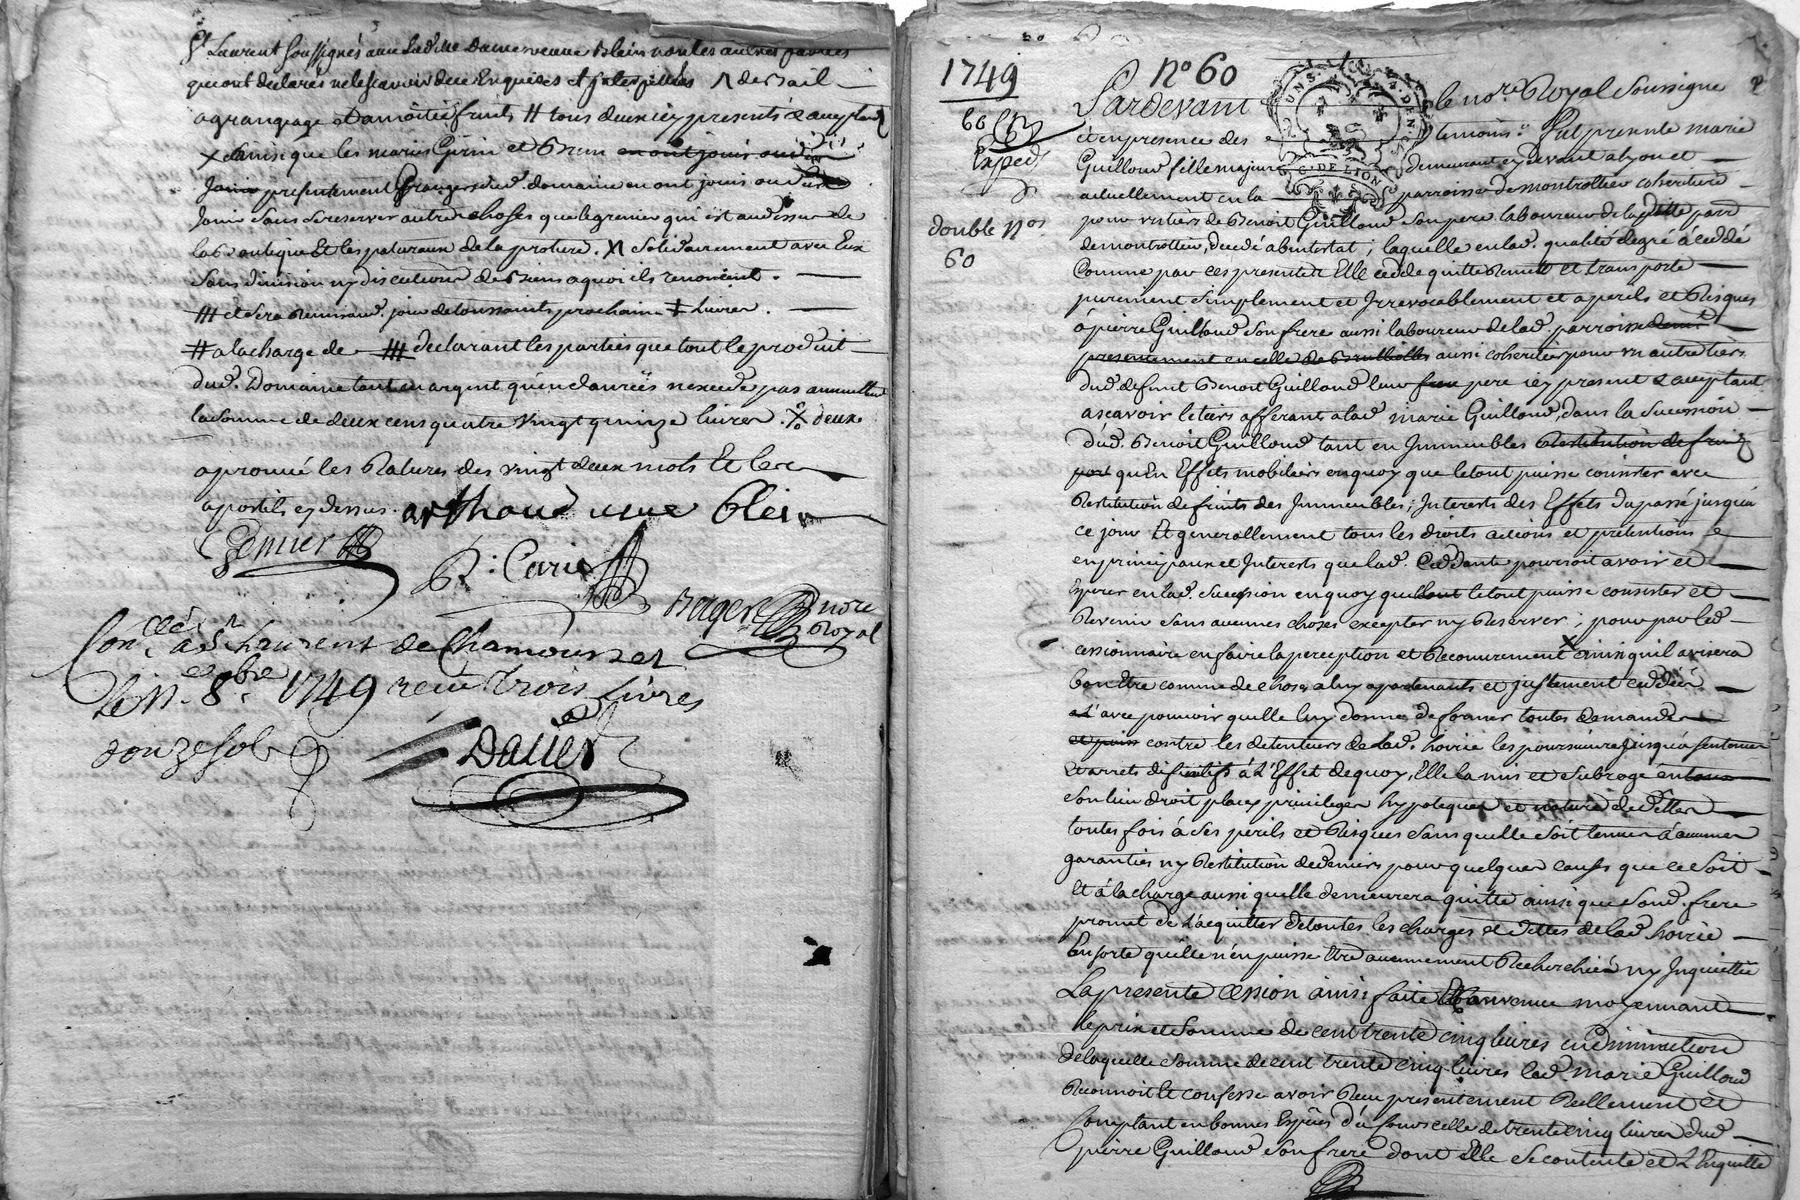 St Laurent soussignés avec lad. Dame veuve Blein non les autres parties
qui ont declarés ne le scavoir de ce Enquis et Interpellés /\ de Bail
a grangeage et a moitié fruits # tous deux icy presents & acceptants
x ainsi que les mariés Girin et Brun en ont jouis ou dû
Jouir presentement Grangers dud. domaine en ont jouis ou dû
Jouir sans se reserver autre choses que le grenier qui est au dessus de
la Boutique Et les patureaux de la proture. X solidairement avec Eux
sans division ny discution de Biens a quoi ils renoncent.
et sera Remis aud. jour de toussaints prochain ‡ hiver.
# a la charge de declarant les parties que tout le produit
dud. Domaine tant en argent qu'en danrées n'excede pas annuellem.
la somme de deux cens quatre vingt quinze livres. deux
aprouvé les Ratures des vingt deux mots Et les
apostils cy dessus. arthaud veuve blein
Grenier
P: Carie
Berger nore
Royal
Con.lé a St Laurent de Chamousset
le 11. 8.bre 1749 receu trois Livres
douze sols
Daller
1749 No 60
60
Expedé
double Nos
60
Pardevant le no.re Royal soussigné
et en presence des temoins fut presente marie
Guilloud fille majeure demeurant cy devant a lyon et
actuellement en la parroisse de montrottier coheritiere
pour un tiers de Benoit Guilloud son pere laboureur de lad. parr.
de montrottier, decedé abintestat; laquelle en lad. qualité de gré à ceddé
Comme par ces presentes Elle cedde quitte Remet et transporte
purement simplement et Irrevocablement et a perils et Risques
à pierre Guilloud son frere aussi laboureur de lad. parroisse
presentement en celle de Brullioles aussi coheritier pour un autre tiers
dud. defunt Benoit Guilloud leur pere icy present & acceptant
ascavoir le tiers afferant a lad. marie Guilloud, dans la sucession
dud. Benoit Guilloud tant en Immeubles Restitution de fruits
qu'en Effets mobiliers en quoy que le tout puisse consister avec
Restitution de fruits des Immeubles; Interests des Effets du passé jusqu'a
ce jour Et generallement tous les droits actions et pretentions
en principaux et Interests que lad. Ceddante pourroit avoir et
Esperer en lad. sucession en quoy que le tout puisse consister et
Revenir sans aucunes choses excepter ny Reserver; pour par led.
cessionnaire en faire la perception et Recouvrement x ainsi qu'il avisera
bon Etre comme de choses a luy apartenants et justement ceddées
et avec pouvoir qu'elle luy donne de former toutes demandes
contre les detenteurs de lad. hoirie les poursuivre jusqu'a sentences
Et arrets difinitifs à L'Effet de quoy, Elle la mis et subrogé en
son lieu droit place, privileges hypoteques et nature d'icelles
toutes fois à ses perils et Risques sans quelle soit tenue à aucunes
garanties ny Restitution de deniers pour quelques causes que ce soit
Et à la charge aussi quelle demeurera quitte ainsi que sond. frere
promet de L'acquitter de toutes les charges et dettes de lad. hoirie
En sorte qu'elle n'en puisse Etre aucunement Recherchée ny Inquiettée
La presente cession ainsi faite Et convenue moyennant
le prix et somme de cent trente cinq livres en diminution
de laquelle somme de cent trente cinq livres lad. marie Guilloud
Reconnoit et confesse avoir Receu presentement Reellement et
Comptant en bonnes Espèces d'u cours celle de trente cinq livres dud.
pierre Guilloud son frere dont Elle se contente et L'En quitte